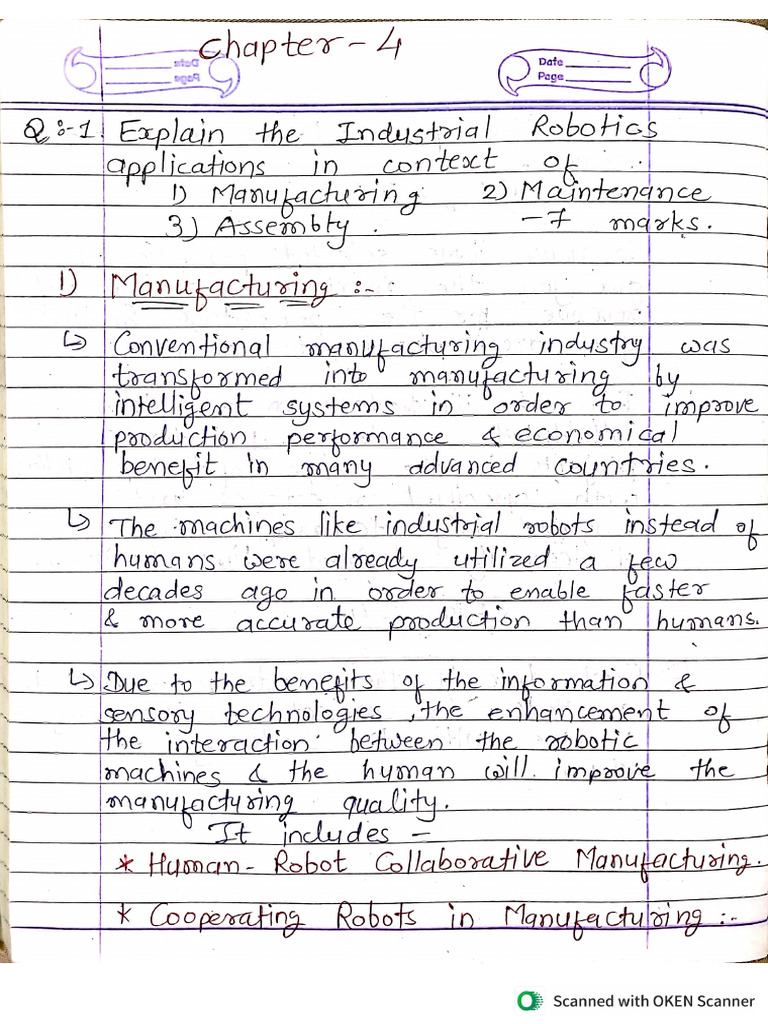 Chapter - 4
Date
Page
Date
Page
Q:-1 Explain the Industrial Robotics
applications in context of
1) Manufacturing 2) Maintenance
3) Assembly. -7 marks.
1) Manufacturing :-
↳ Conventional manufacturing industry was
transformed into manufacturing by
intelligent systems in order to improve
production performance & economical
benefit in many advanced countries.
↳ The machines like industrial robots instead of
humans were already utilized a few
decades ago in order to enable faster
& more accurate production than humans.
↳ Due to the benefits of the information &
sensory technologies, the enhancement of
the interaction between the robotic
machines & the human will improve the
manufacturing quality.
It includes -
* Human - Robot Collaborative Manufacturing.
* Cooperating Robots in Manufacturing :-
Scanned with OKEN Scanner